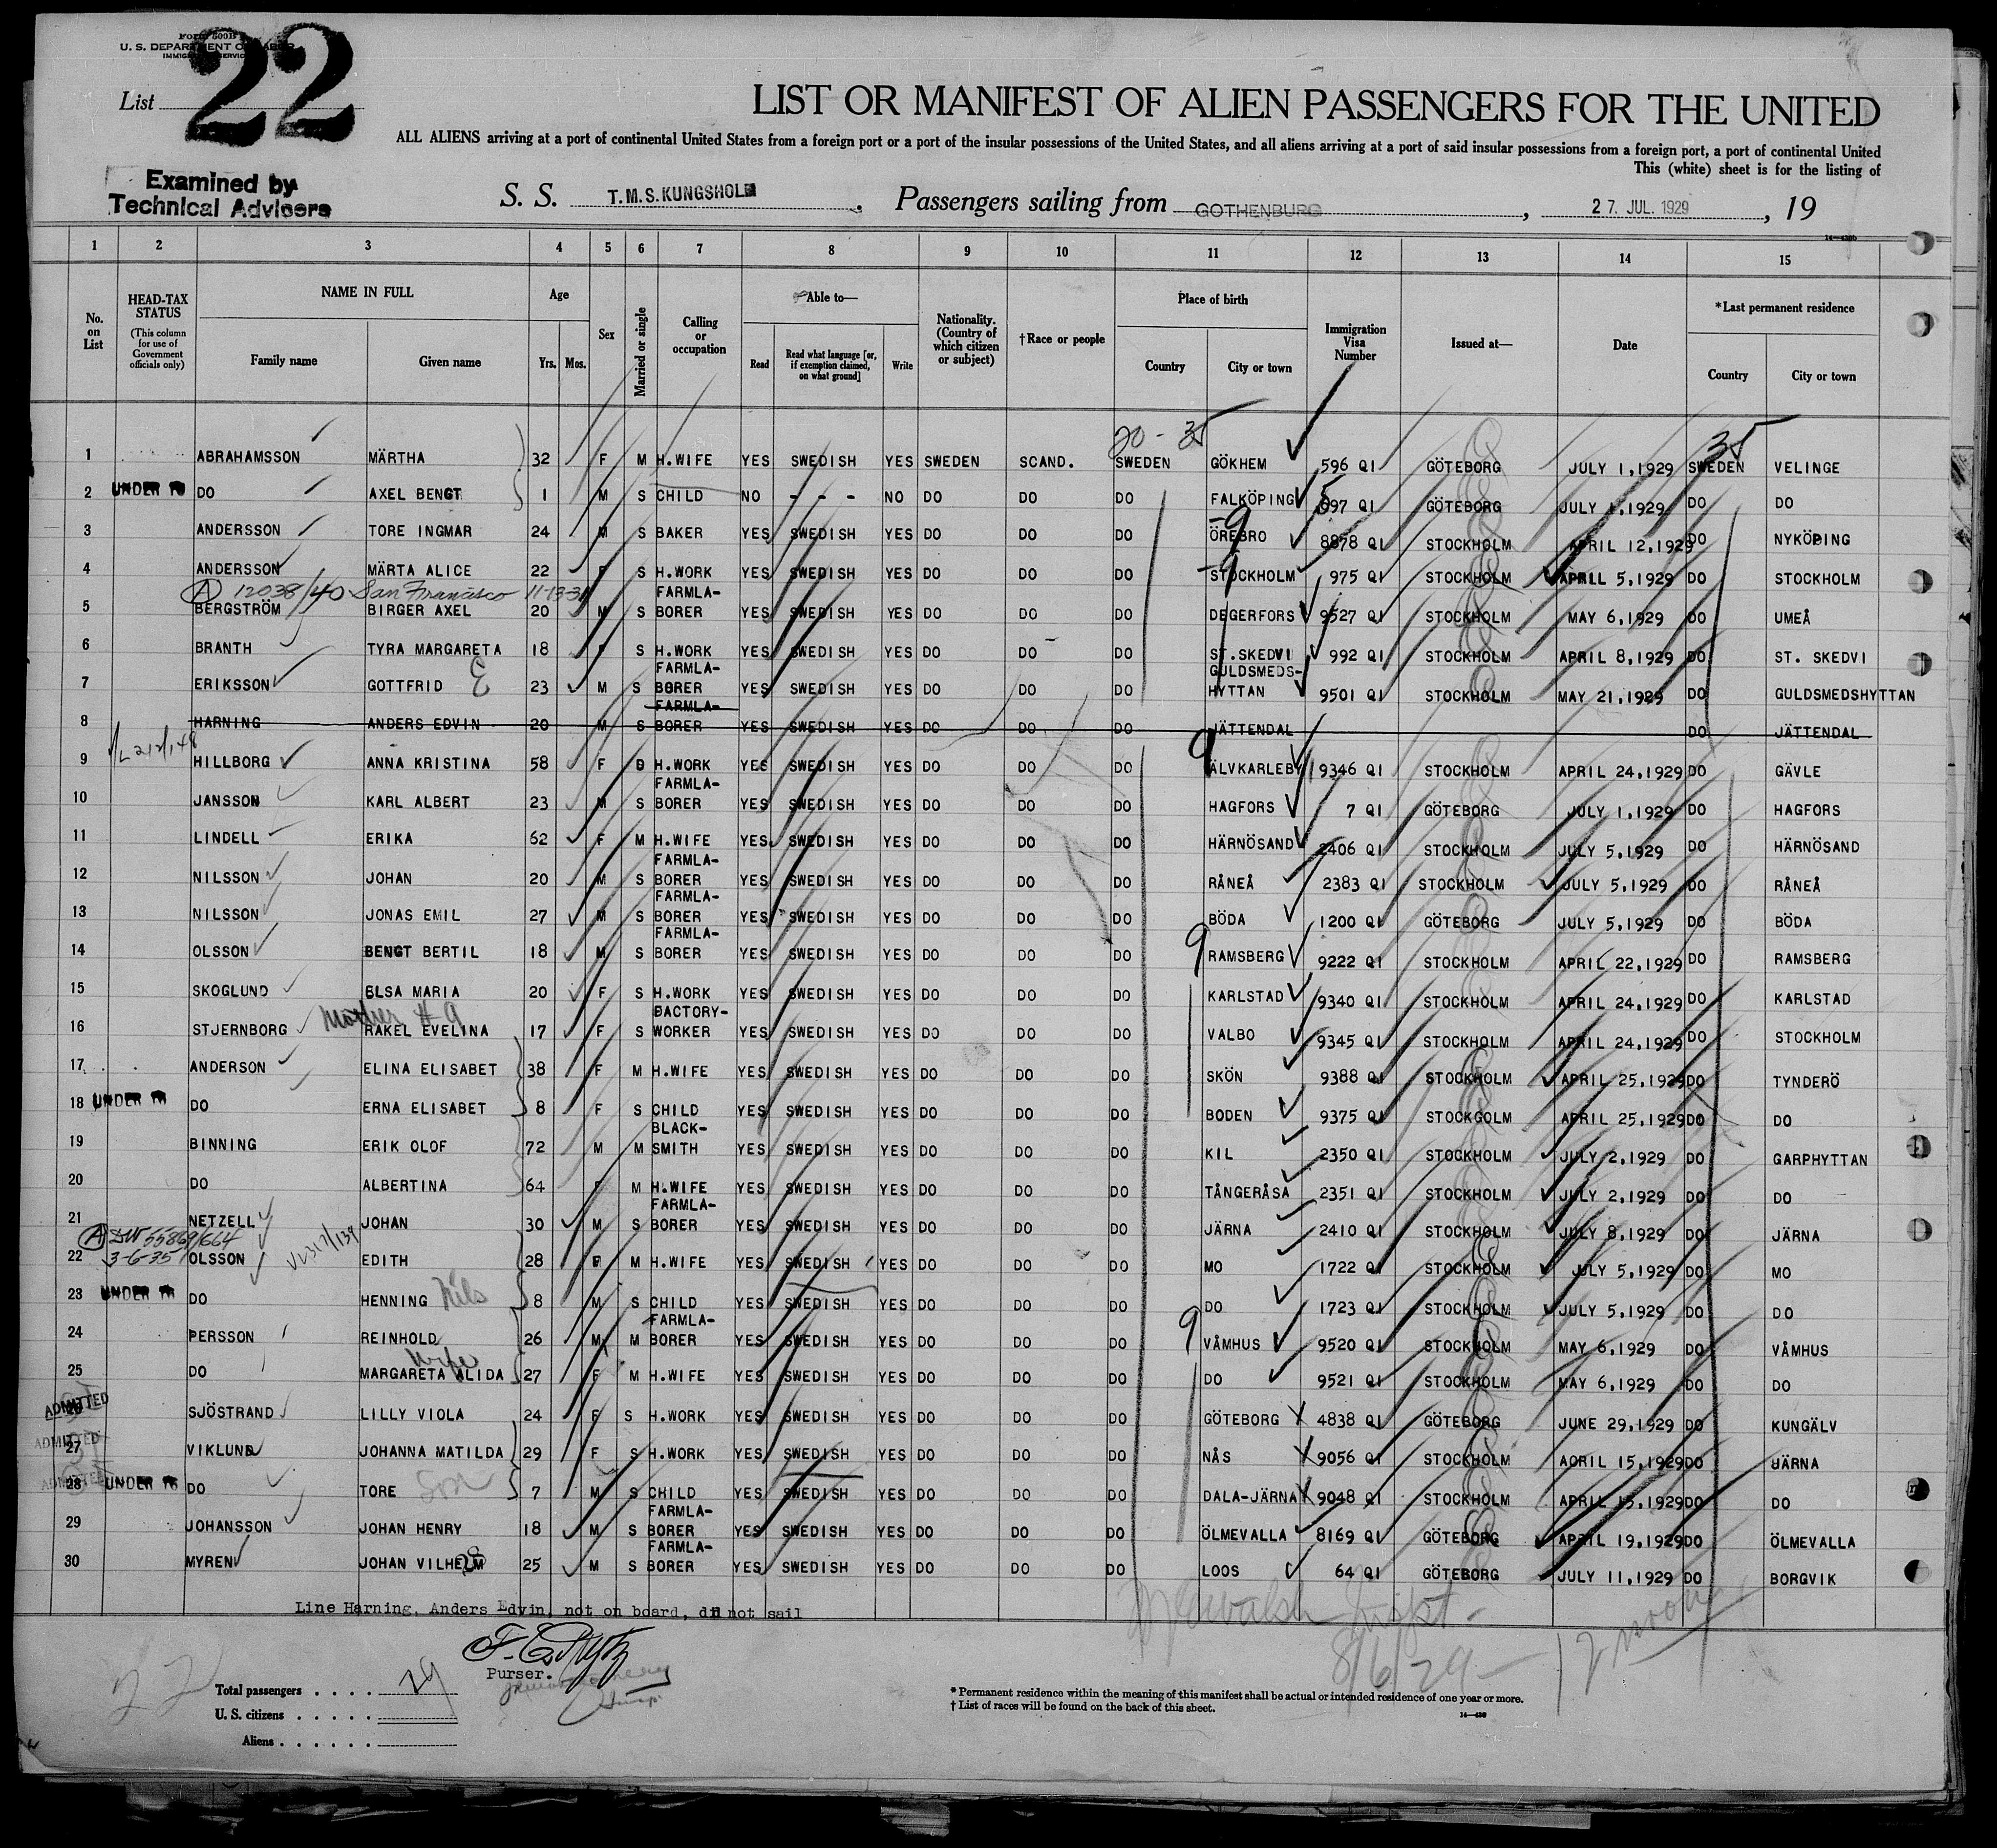 Form 500B
U. S. DEPARTMENT OF LABOR
IMMIGRATION SERVICE
List 22
LIST OR MANIFEST OF ALIEN PASSENGERS FOR THE UNITED
ALL ALIENS arriving at a port of continental United States from a foreign port or a port of the insular possessions of the United States, and all aliens arriving at a port of said insular possessions from a foreign port, a port of continental United
This (white) sheet is for the listing of
Examined by
Technical Advisers
S. S. T.M.S. KUNGSHOLM. Passengers sailing from GOTHENBURG, 27. JUL. 1929, 19
1 2 3 4 5 6 7 8 9 10 11 12 13 14 15
No. on List
HEAD-TAX STATUS
(This column for use of Government officials only)
NAME IN FULL
Family name Given name
Age
Yrs. Mos.
Sex
Married or single
Calling or occupation
Able to—
Read Read what language [or, if exemption claimed, on what ground] Write
Nationality. (Country of which citizen or subject)
†Race or people
Place of birth
Country City or town
Immigration Visa Number
Issued at—
Date
*Last permanent residence
Country City or town
20 - 35 35
1 ABRAHAMSSON MÄRTHA 32 F M H.WIFE YES SWEDISH YES SWEDEN SCAND. SWEDEN GÖKHEM 596 QI GÖTEBORG JULY 1,1929 SWEDEN VELINGE
2 UNDER 16 DO AXEL BENGT 1 M S CHILD NO - - - NO DO DO DO FALKÖPING 597 QI GÖTEBORG JULY 1,1929 DO DO
3 ANDERSSON TORE INGMAR 24 M S BAKER YES SWEDISH YES DO DO DO ÖREBRO 8878 QI STOCKHOLM APRIL 12,1929 DO NYKÖPING
4 ANDERSSON MÄRTA ALICE 22 F S H.WORK YES SWEDISH YES DO DO DO STOCKHOLM 975 QI STOCKHOLM APRIL 5,1929 DO STOCKHOLM
A 12038/40 San Francisco 11-13-31
5 BERGSTRÖM BIRGER AXEL 20 M S FARMLA-BORER YES SWEDISH YES DO DO DO DEGERFORS 9527 QI STOCKHOLM MAY 6,1929 DO UMEÅ
6 BRANTH TYRA MARGARETA 18 F S H.WORK YES SWEDISH YES DO DO DO ST.SKEDVI 992 QI STOCKHOLM APRIL 8,1929 DO ST. SKEDVI
7 ERIKSSON GOTTFRID E 23 M S FARMLA-BORER YES SWEDISH YES DO DO DO GULDSMEDS-HYTTAN 9501 QI STOCKHOLM MAY 21,1929 DO GULDSMEDSHYTTAN
8 HARNING ANDERS EDVIN 20 M S FARMLA-BORER YES SWEDISH YES DO DO DO JÄTTENDAL DO JÄTTENDAL
9 HILLBORG ANNA KRISTINA 58 F D H.WORK YES SWEDISH YES DO DO DO ÄLVKARLEBY 9346 QI STOCKHOLM APRIL 24,1929 DO GÄVLE
10 JANSSON KARL ALBERT 23 M S FARMLA-BORER YES SWEDISH YES DO DO DO HAGFORS 7 QI GÖTEBORG JULY 1,1929 DO HAGFORS
11 LINDELL ERIKA 62 F M H.WIFE YES SWEDISH YES DO DO DO HÄRNÖSAND 2406 QI STOCKHOLM JULY 5,1929 DO HÄRNÖSAND
12 NILSSON JOHAN 20 M S FARMLA-BORER YES SWEDISH YES DO DO DO RÅNEÅ 2383 QI STOCKHOLM JULY 5,1929 DO RÅNEÅ
13 NILSSON JONAS EMIL 27 M S FARMLA-BORER YES SWEDISH YES DO DO DO BÖDA 1200 QI GÖTEBORG JULY 5,1929 DO BÖDA
14 OLSSON BENGT BERTIL 18 M S FARMLA-BORER YES SWEDISH YES DO DO DO RAMSBERG 9222 QI STOCKHOLM APRIL 22,1929 DO RAMSBERG
15 SKOGLUND ELSA MARIA 20 F S H.WORK YES SWEDISH YES DO DO DO KARLSTAD 9340 QI STOCKHOLM APRIL 24,1929 DO KARLSTAD
Mother #9
16 STJERNBORG RAKEL EVELINA 17 F S FACTORY-WORKER YES SWEDISH YES DO DO DO VALBO 9345 QI STOCKHOLM APRIL 24,1929 DO STOCKHOLM
17 ANDERSON ELINA ELISABET 38 F M H.WIFE YES SWEDISH YES DO DO DO SKÖN 9388 QI STOCKHOLM APRIL 25,1929 DO TYNDERÖ
18 UNDER 16 DO ERNA ELISABET 8 F S CHILD YES SWEDISH YES DO DO DO BODEN 9375 QI STOCKGOLM APRIL 25,1929 DO DO
19 BINNING ERIK OLOF 72 M M BLACK-SMITH YES SWEDISH YES DO DO DO KIL 2350 QI STOCKHOLM JULY 2,1929 DO GARPHYTTAN
20 DO ALBERTINA 64 F M H.WIFE YES SWEDISH YES DO DO DO TÅNGERÅSA 2351 QI STOCKHOLM JULY 2,1929 DO DO
21 NETZELL JOHAN 30 M S FARMLA-BORER YES SWEDISH YES DO DO DO JÄRNA 2410 QI STOCKHOLM JULY 8,1929 DO JÄRNA
22 3-6-35 OLSSON EDITH 28 F M H.WIFE YES SWEDISH YES DO DO DO MO 1722 QI STOCKHOLM JULY 5,1929 DO MO
23 UNDER 16 DO HENNING Nils 8 M S CHILD YES SWEDISH YES DO DO DO DO 1723 QI STOCKHOLM JULY 5,1929 DO DO
24 PERSSON REINHOLD 26 M M FARMLA-BORER YES SWEDISH YES DO DO DO VÅMHUS 9520 QI STOCKHOLM MAY 6,1929 DO VÅMHUS
Wife
25 DO MARGARETA ALIDA 27 F M H.WIFE YES SWEDISH YES DO DO DO DO 9521 QI STOCKHOLM MAY 6,1929 DO DO
26 ADMITTED SJÖSTRAND LILLY VIOLA 24 F S H.WORK YES SWEDISH YES DO DO DO GÖTEBORG 4838 QI GÖTEBORG JUNE 29,1929 DO KUNGÄLV
27 ADMITTED VIKLUND JOHANNA MATILDA 29 F S H.WORK YES SWEDISH YES DO DO DO NÅS 9056 QI STOCKHOLM AORIL 15,1929 DO JÄRNA
28 ADMITTED UNDER 16 DO TORE Son 7 M S CHILD YES SWEDISH YES DO DO DO DALA-JÄRNA 9048 QI STOCKHOLM APRIL 15,1929 DO DO
29 JOHANSSON JOHAN HENRY 18 M S FARMLA-BORER YES SWEDISH YES DO DO DO ÖLMEVALLA 8169 QI GÖTEBORG APRIL 19,1929 DO ÖLMEVALLA
30 MYREN JOHAN VILHELM 25 M S FARMLA-BORER YES SWEDISH YES DO DO DO LOOS 64 QI GÖTEBORG JULY 11,1929 DO BORGVIK
Line Harning, Anders Edvin, not on board, did not sail
Purser.
8/6/29 - 12 noon
22
Total passengers . . . . 29
U. S. citizens . . . . .
Aliens . . . . . .
* Permanent residence within the meaning of this manifest shall be actual or intended residence of one year or more.
† List of races will be found on the back of this sheet.
14—430